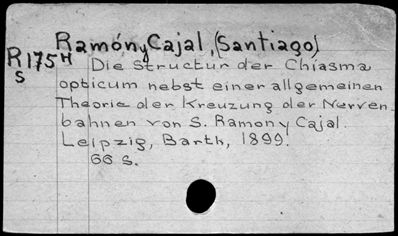 Ramón y Cajal, (Santiago)
R175H Die Structur der Chiasma
S
opticum nebst einer allgemeinen
Theorie der Kreuzung der Nerven-
bahnen von S. Ramon y Cajal.
Leipzig, Barth, 1899.
66 S.